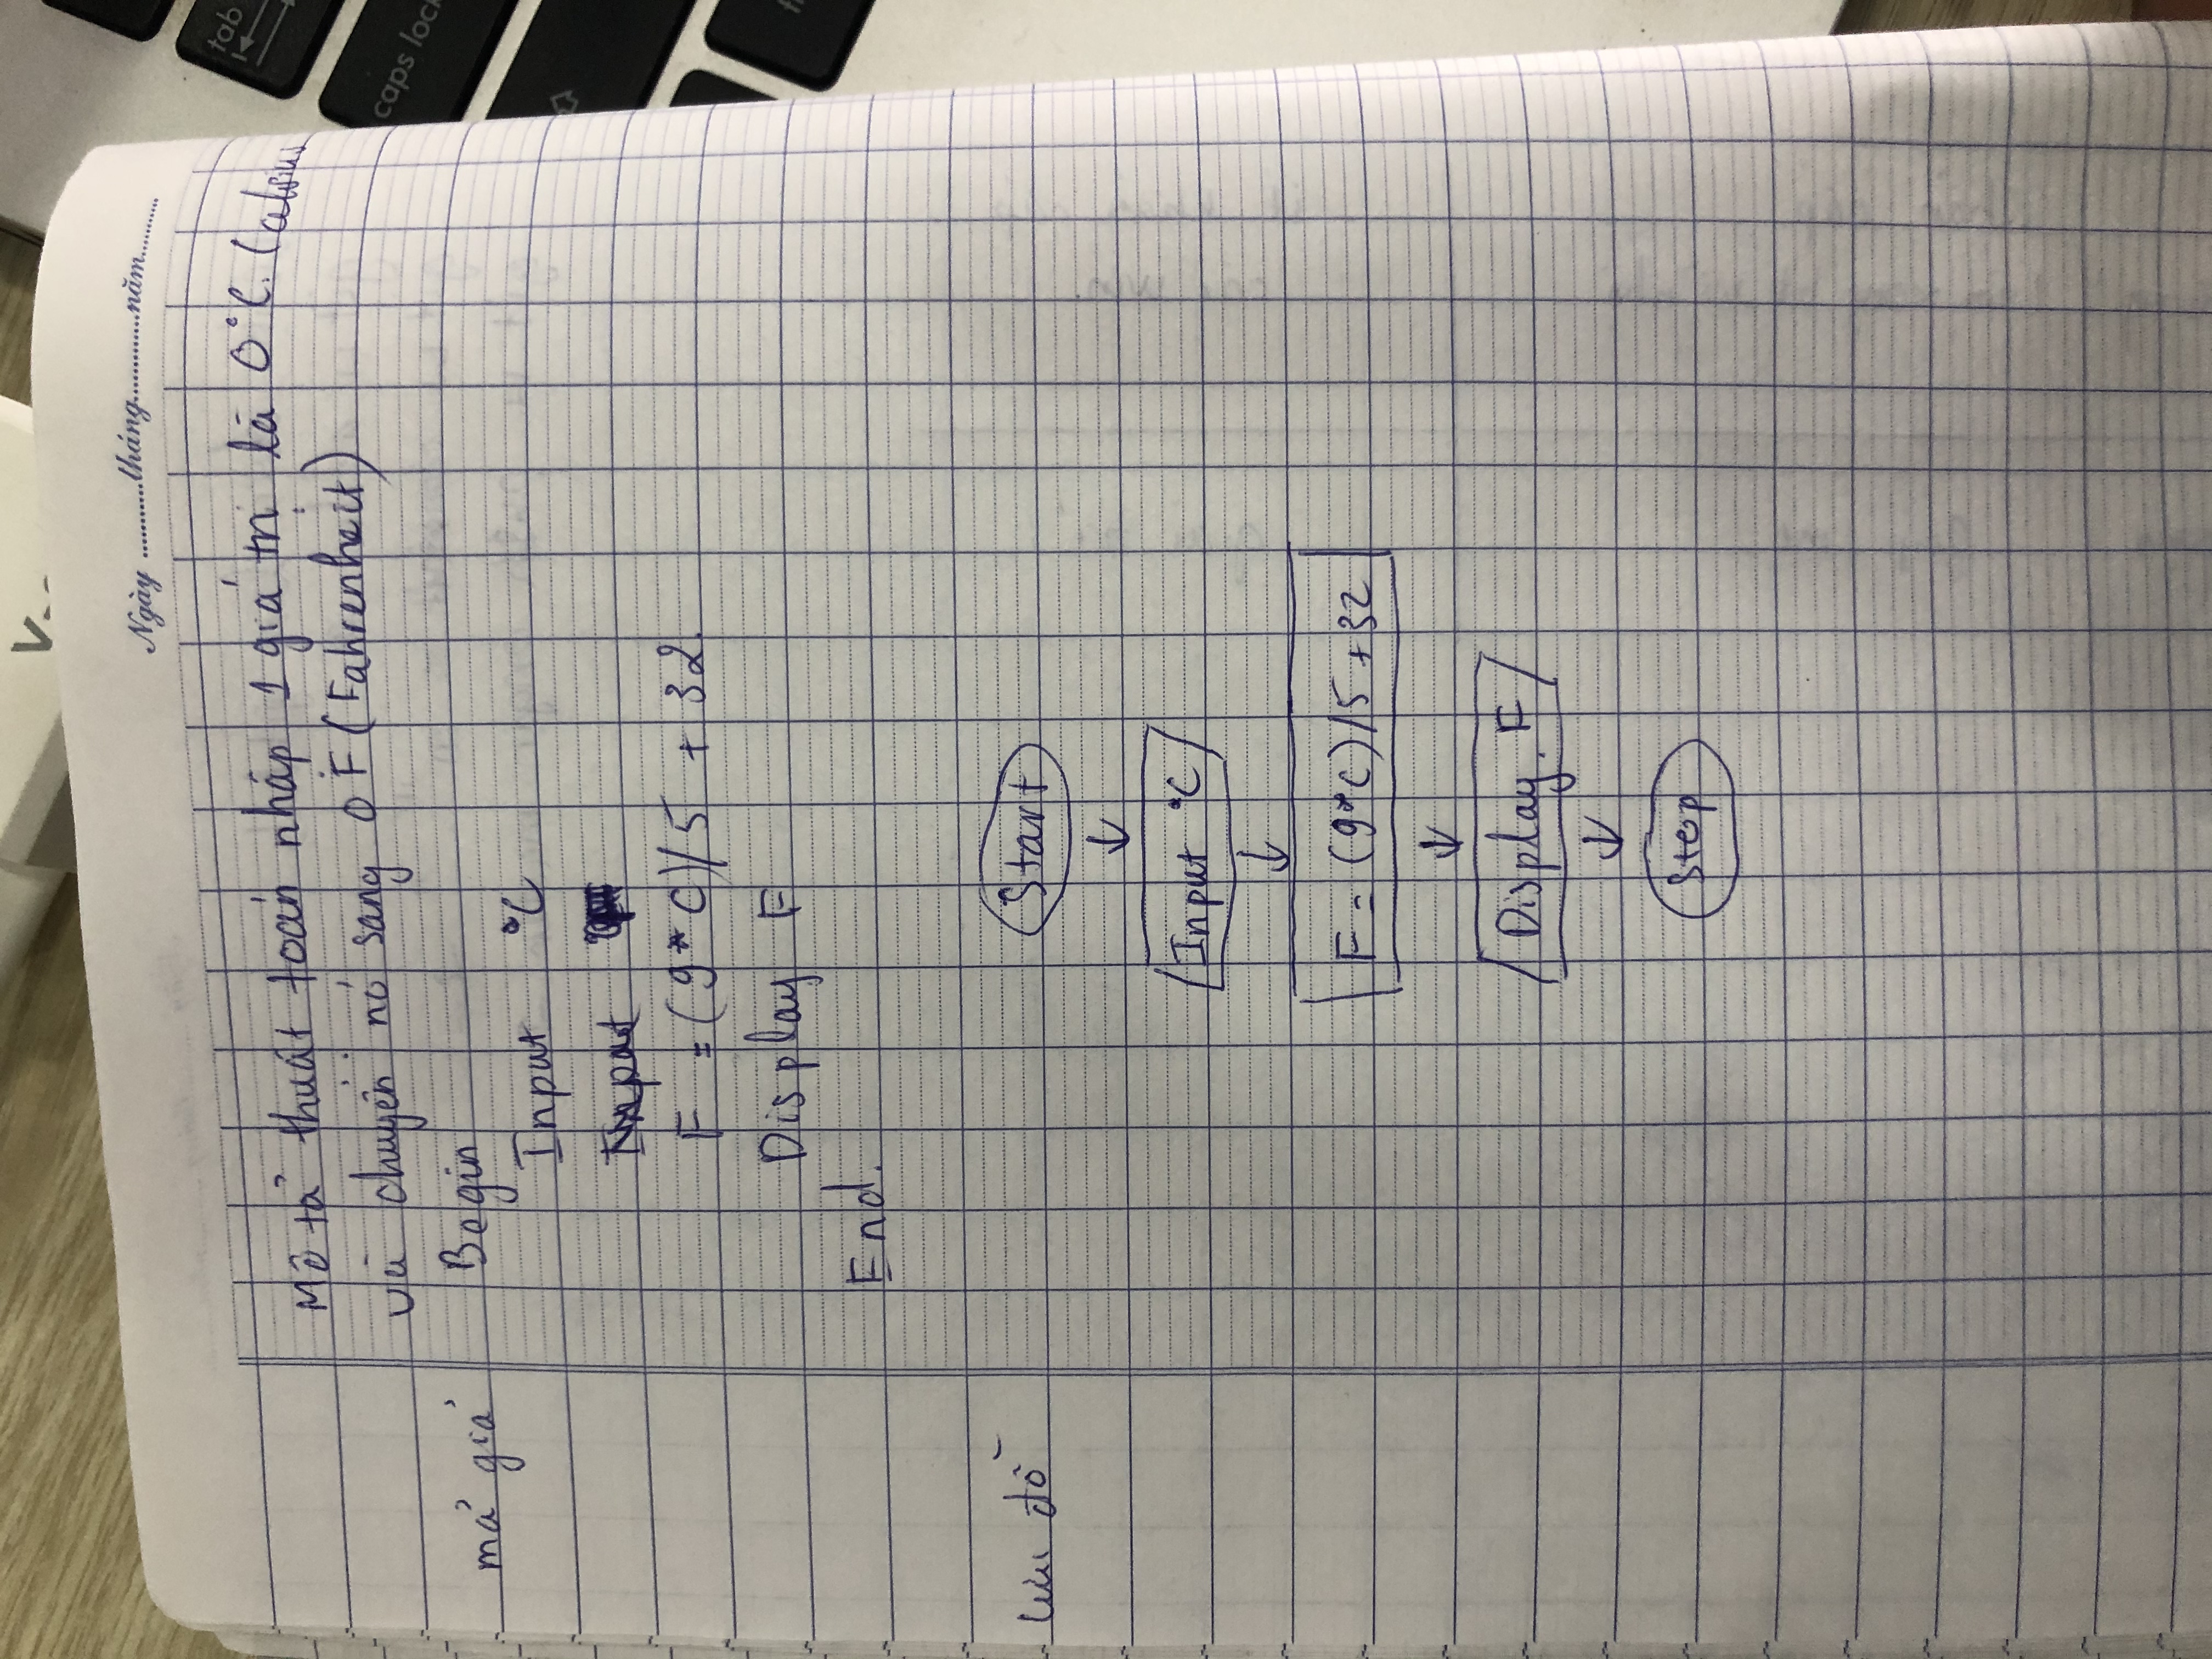 Ngày ...........tháng.............năm.........
Mô tả thuật toán nhập 1 giá trị là 0°C. (
và chuyển nó sang 0 F (Fahrenheit)
mả giả Begin
Input °C
Input
F = (9* C)/5 + 32.
Display F
End.
lưu đồ
Start
↓
Input °C
↓
F = (9*C)/5 + 32
↓
Display. F
↓
Stop
tab
caps lock